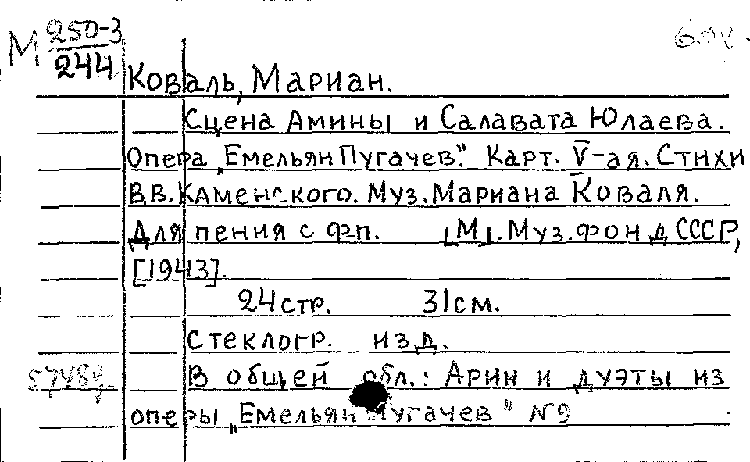 М 250-3
244
Коваль, Мариан.
Сцена Амины и Салавата Юлаева.
Опера „Емельян Пугачев". Карт. V-ая. Стихи
В.В. Каменского. Муз. Мариана Коваля.
Для пения с фп. [М]. Муз. фонд СССР,
[1943].
24 стр. 31 см.
Стеклогр. изд.
В общей обл.: Арии и дуэты из
оперы „Емельян Пугачев" №9